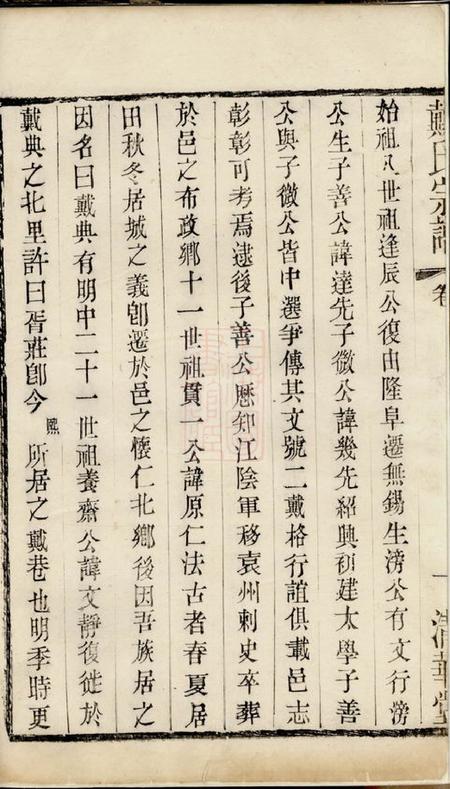 戴氏宗譜 卷 一 清華堂
始祖八世祖逢辰公復由隆阜遷無錫生滂公有文行滂
公生子善公諱達先子微公諱幾先紹興初建太學子善
公與子微公皆中選爭傳其文號二戴格行誼俱載邑志
彭彰可考焉逮後子善公歷知江陰軍移袁州刺史卒葬
於邑之布政鄉十一世祖貫一公諱原仁法古者春夏居
田秋冬居城之義卽遷於邑之懷仁北鄉後因吾族居之
因名曰戴典有明中二十一世祖養齋公諱文靜復徙於
戴典之北里許曰胥莊卽今熙所居之戴巷也明季時更